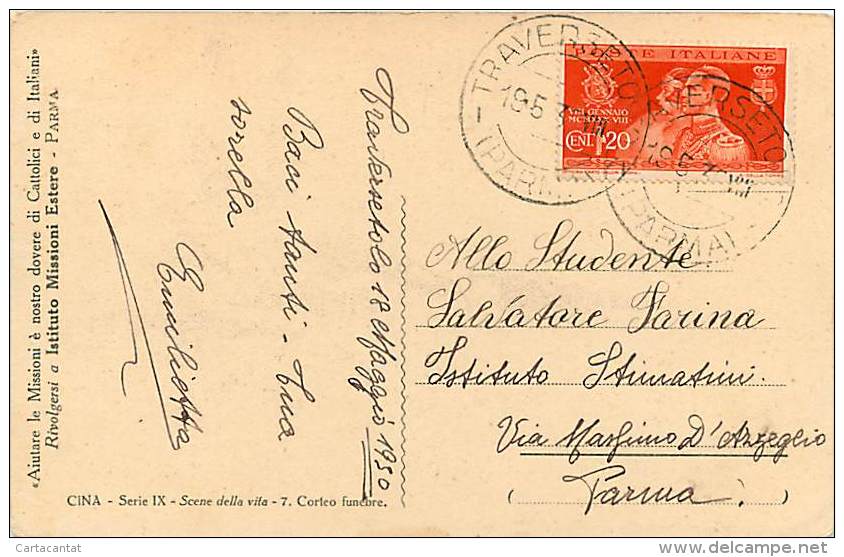 «Aiutare le Missioni è nostro dovere di Cattolici e di Italiani»
Rivolgersi a Istituto Missioni Estere - PARMA
Traversetolo 18 Maggio 1930
Baci tanti - Tua
sorella
Emilietta
CINA - Serie IX - Scene della vita - 7. Corteo funebre.
POSTE ITALIANE
VIII GENNAIO
MCMXXX VIII
CENT. 20
TRAVERSETOLO
19·5·3 VIII
(PARMA)
TRAVERSETOLO
19·5·3 VIII
(PARMA)
Allo Studente
Salvatore Farina
Istituto Stimatini
Via Massimo D'Azeglio
(Parma)
Cartacantat
www.delcampe.net